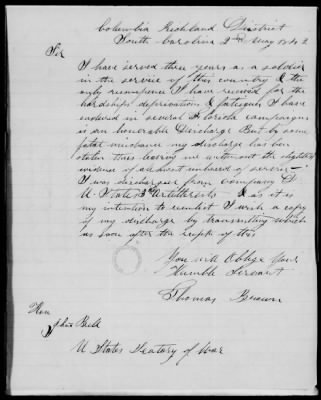 Columbia Richland District
South Carolina 2nd May 1842
Sir
I have served three years as a soldier
in the service of this country & the
only recompense I have received for the
hardships deprivation & fatigues I have
endured in several Florida campaigns
is an honorable Discharge But by some
fatal mischance my discharge has been
stolen thus leaving me without the slightest
evidence of an honest
I was discharged from Company
U. States 3rd Artillery & as it is
my intention to reenlist I wish a copy
of my discharge by transmitting which
as soon after the receipt of this
You will Oblige Your
Humble Servant
Thomas Brown
Hon
John Bell
U States Secatary of War